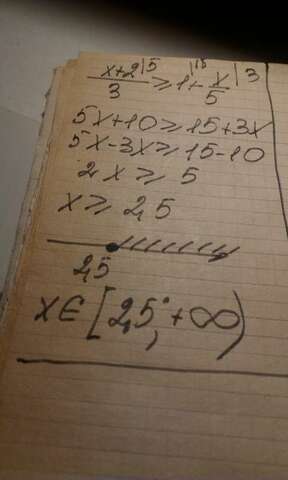 (x+2)/3 |5 ≥ 1 |15 + x/5 |3
5x+10 ≥ 15+3x
5x-3x ≥ 15-10
2x ≥ 5
x ≥ 2,5
2,5
x ∈ [2,5; +∞)